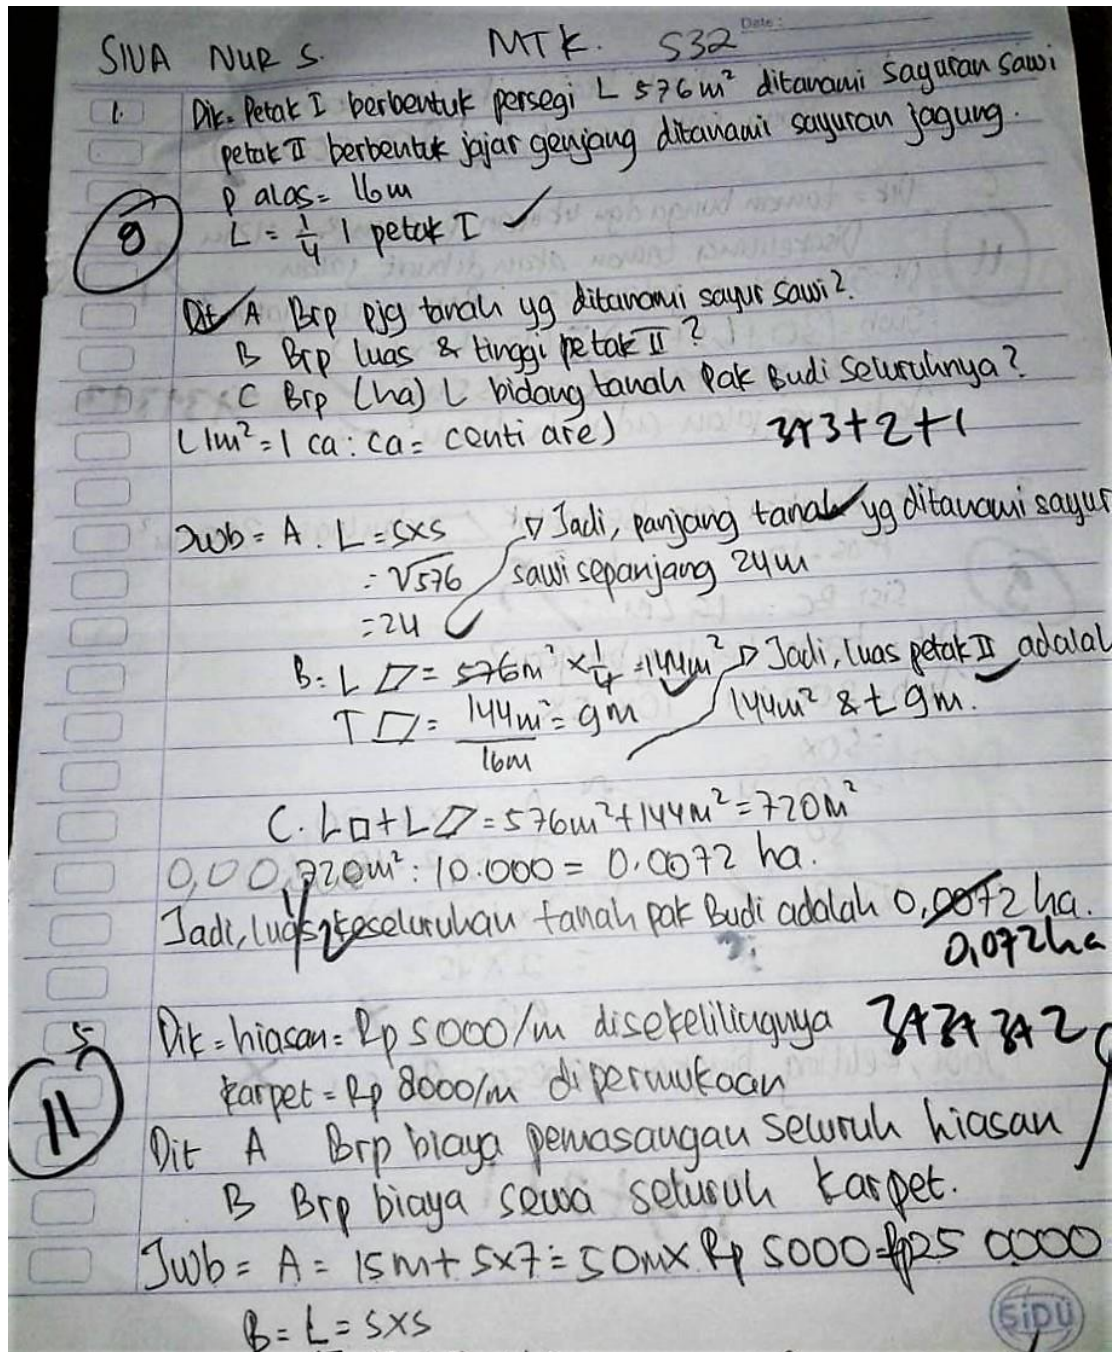 Date:
SIVA NUR S. MTK. 532
1. Dik = Petak I berbentuk persegi L 576 m² ditanami sayuran sawi
petak II berbentuk jajar genjang ditanami sayuran jagung.
P alas = 16 m
9
L = 1/4 l petak I ✓
Dit A Brp pjg tanah yg ditanami sayur sawi?
B Brp luas & tinggi petak II?
C Brp (ha) L bidang tanah Pak Budi seluruhnya?
(1m² = 1 ca : ca = centi are) 3+3+2+1
Jwb = A. L = s×s ▷ Jadi, panjang tanah yg ditanami sayur
= √576 sawi sepanjang 24 m
= 24
B: L ▱ = 576 m² × 1/4 = 144 m² ▷ Jadi, luas petak II adalah
T ▱ = 144 m²/16 m = 9 m 144 m² & t 9 m.
C. L □ + L ▱ = 576 m² + 144 m² = 720 m²
0,00 720 m² : 10.000 = 0.0072 ha.
Jadi, luas keseluruhan tanah pak Budi adalah 0,0072 ha.
0,072 ha
5 Dik = hiasan = Rp 5000/m disekelilingnya 3+3+3+2
karpet = Rp 8000/m dipermukaan
11
Dit A Brp biaya pemasangan seluruh hiasan
B Brp biaya sewa seluruh karpet.
Jwb = A = 15m + 5×7 = 50m × Rp 5000 = Rp25 0000
B = L = s×s
SiDU